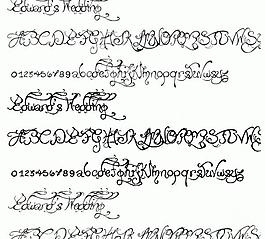 Edward's Wedding
ABCDEFGHIJKLMNOPQRSTUVWXYZ
0123456789abcdefghijklmnopqrstuvwxyz
Edward's Wedding
ABCDEFGHIJKLMNOPQRSTUVWXYZ
0123456789abcdefghijklmnopqrstuvwxyz
Edward's Wedding
ABCDEFGHIJKLMNOPQRSTUVWXYZ